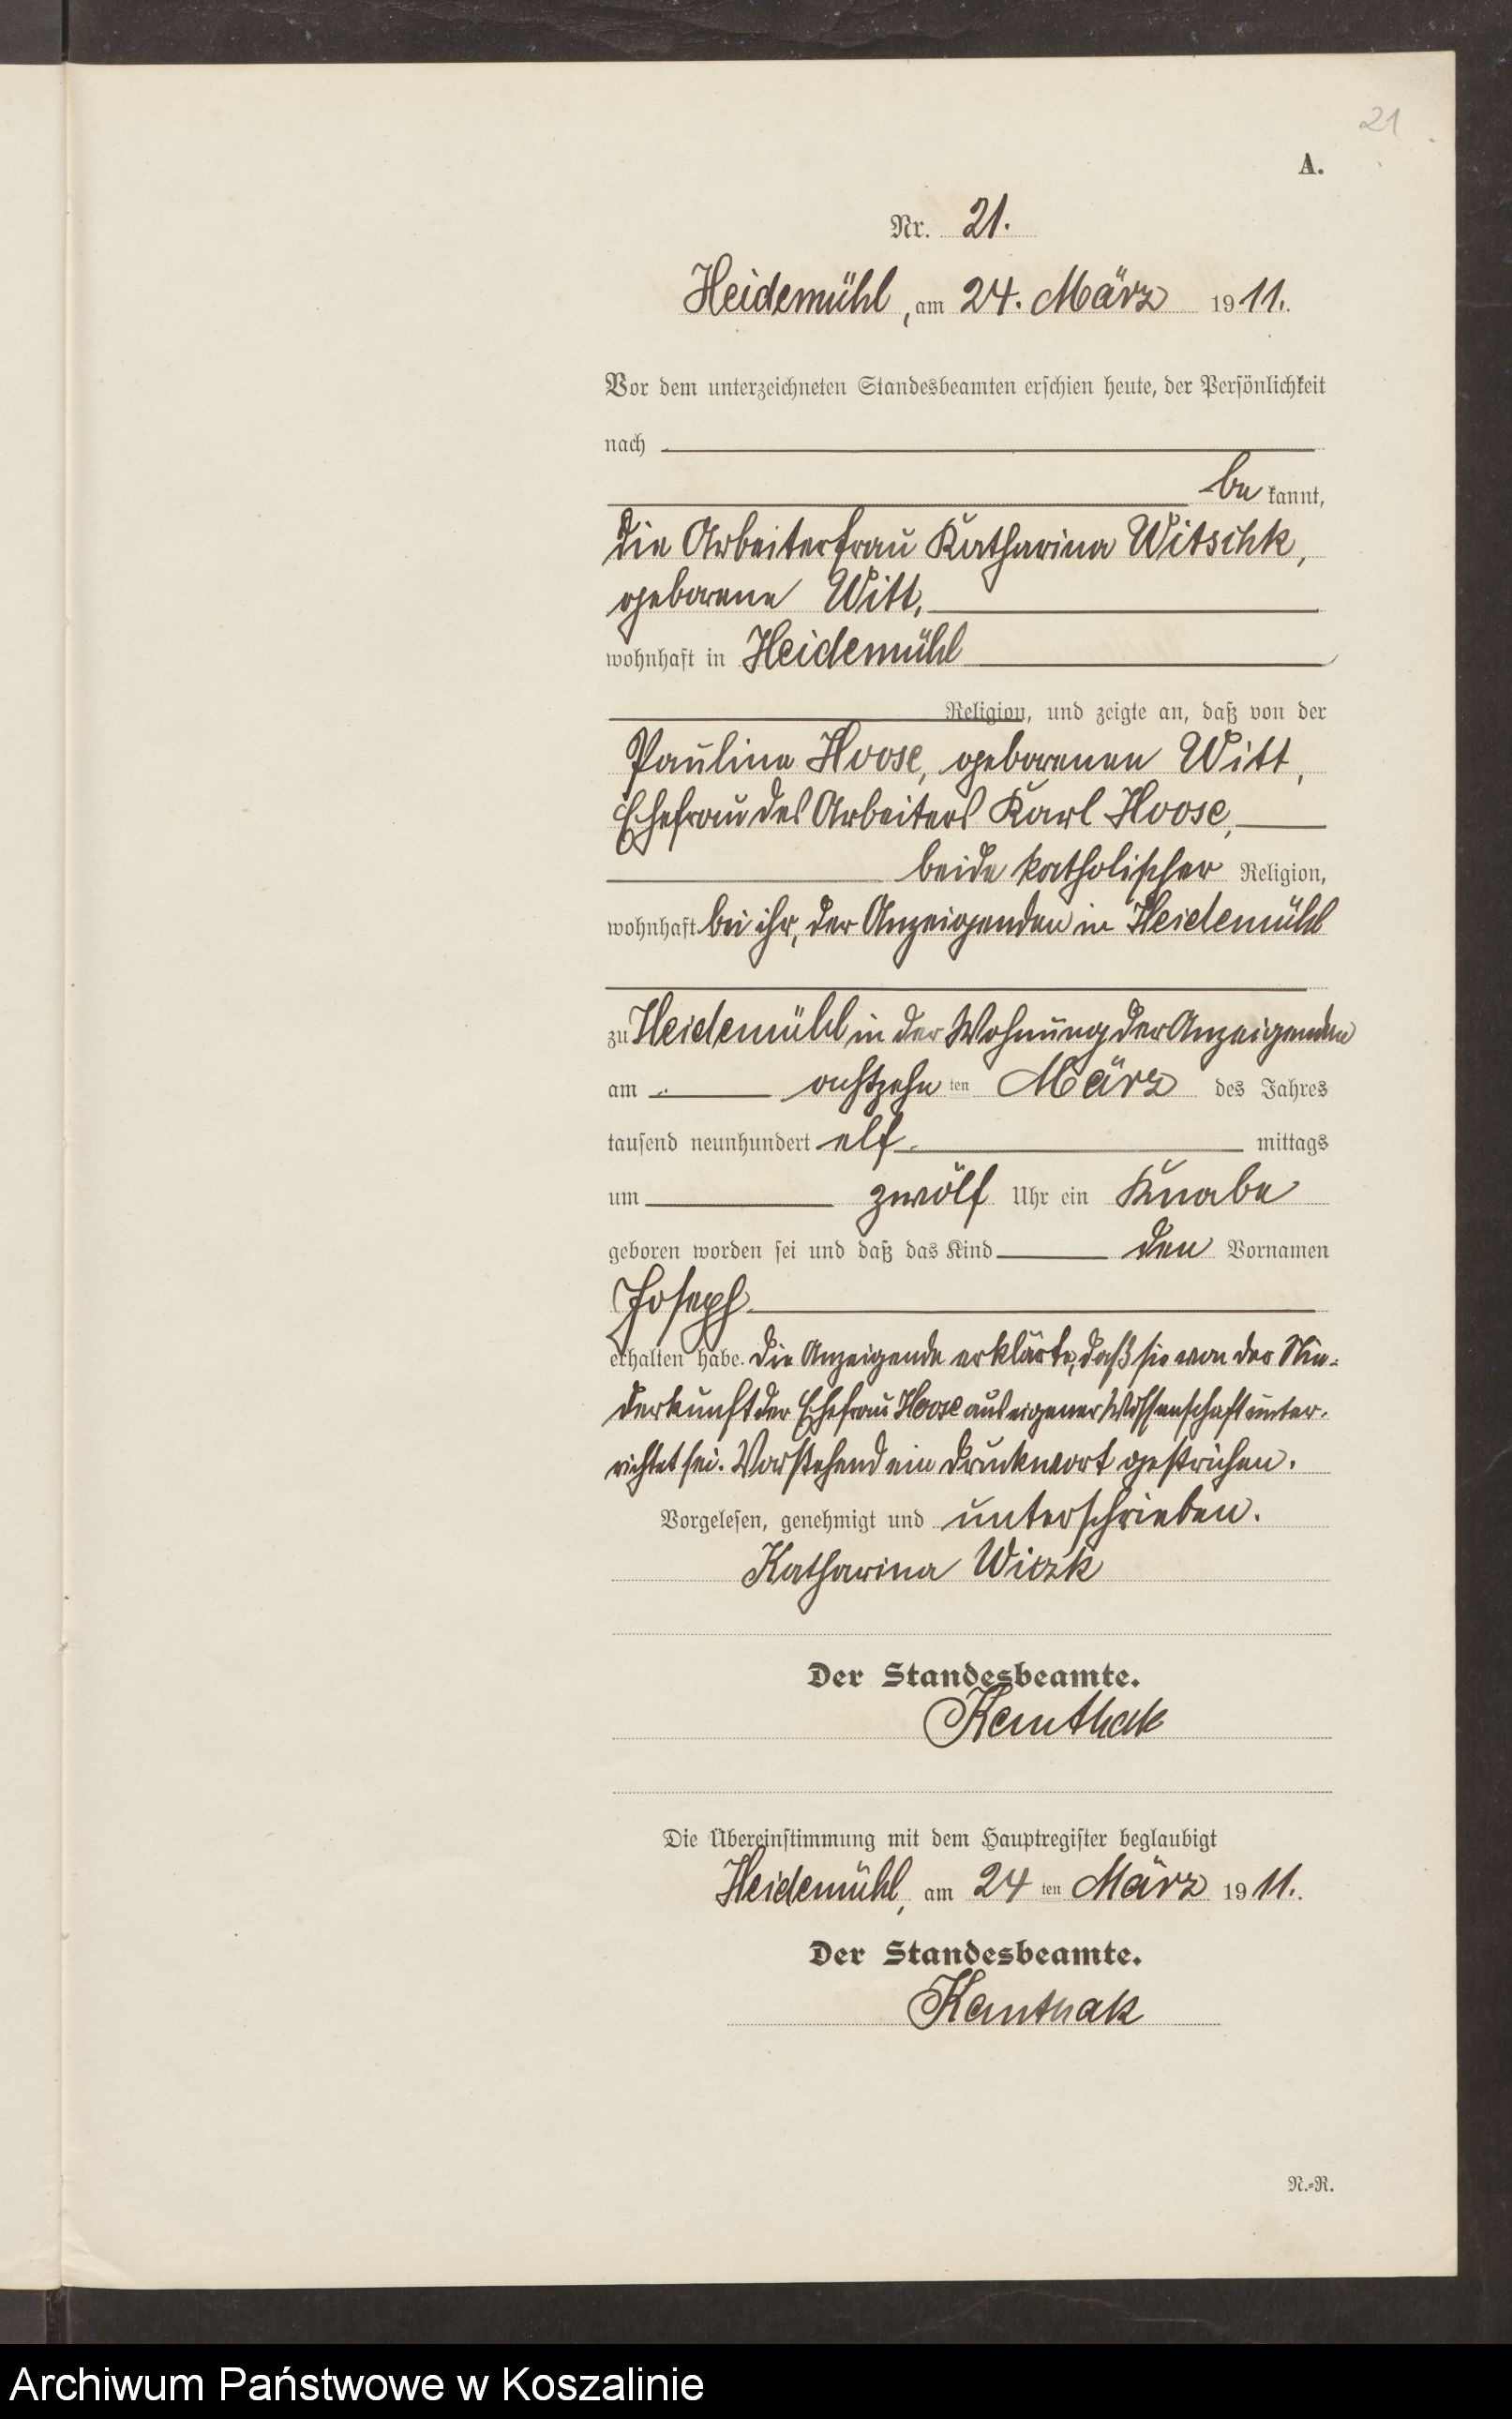 21
A.
Nr. 21.
Heidemühl, am 24. März 1911.
Vor dem unterzeichneten Standesbeamten erschien heute, der Persönlichkeit
nach
be kannt,
die Arbeiterfrau Katharina Witschk,
geborene Witt,
wohnhaft in Heidemühl
Religion, und zeigte an, daß von der
Pauline Hoose, geborenen Witt,
Ehefrau des Arbeiters Karl Hoose,
beide katholischer Religion,
wohnhaft bei ihr, der Anzeigenden in Heidemühl
zu Heidemühl in der Wohnung der Anzeigenden
am achtzehn ten März des Jahres
tausend neunhundert elf mittags
um zwölf Uhr ein Knabe
geboren worden sei und daß das Kind den Vornamen
Joseph
erhalten habe. Die Anzeigende erklärte, daß sie von der Nie-
derkunft der Ehefrau Hoose aus eigener Wissenschaft unter-
richtet sei. Vorstehend ein Druckwort gestrichen.
Vorgelesen, genehmigt und unterschrieben.
Katharina Wiczk
Der Standesbeamte.
Kemthak
Die Übereinstimmung mit dem Hauptregister beglaubigt
Heidemühl, am 24 ten März 1911.
Der Standesbeamte.
Kemthak
N.-R.
Archiwum Państwowe w Koszalinie